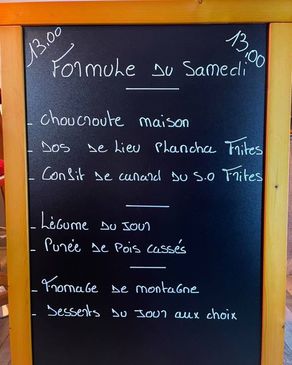 13,00 13,00
Formule Du Samedi
- choucroute maison
- Dos De Lieu Plancha Frites
- Confit de canard Du S.O Frites
- Légume Du Jour
- Purée De Pois cassés
- Fromage De montagne
- Desserts Du Jour aux choix